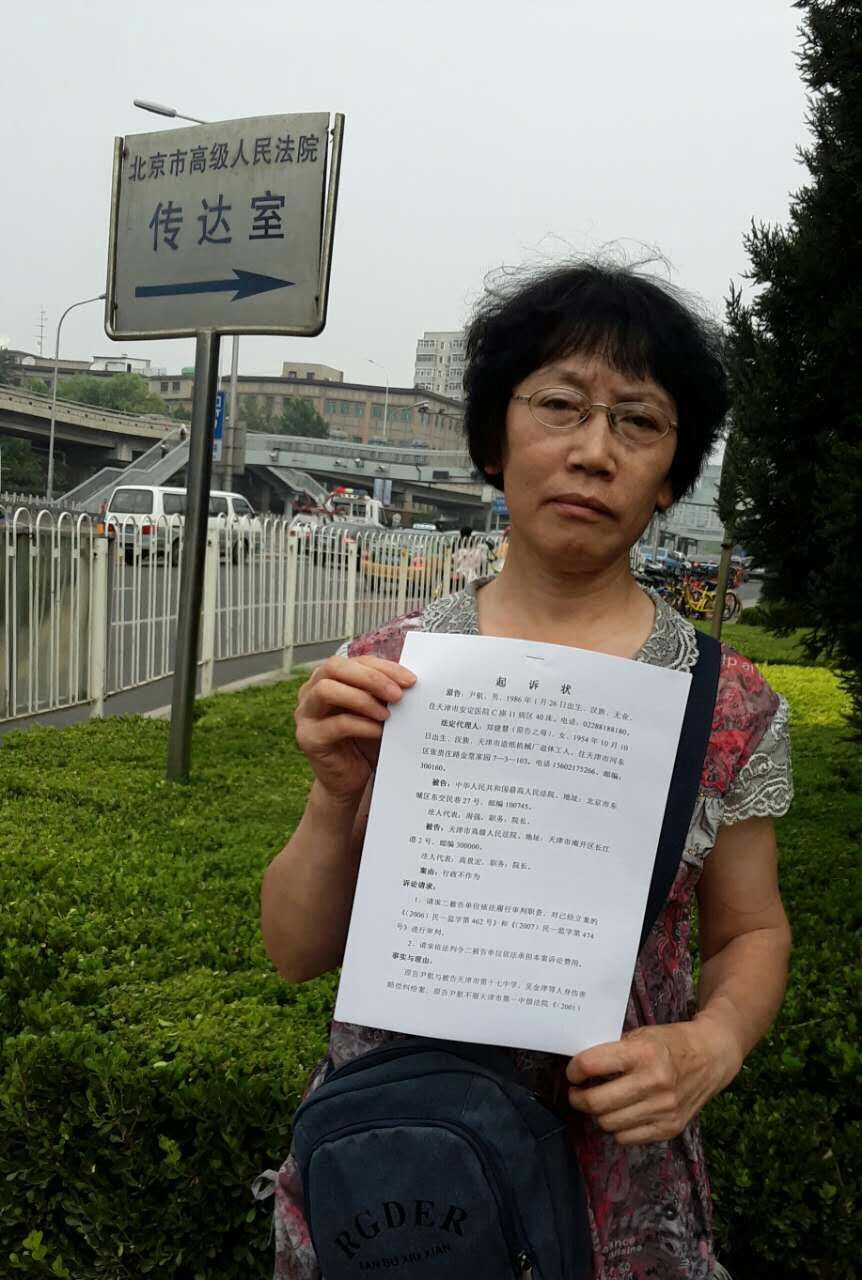 北京市高级人民法院
传达室
起诉状
原告：尹航，男，1986年1月26日出生，汉族，无业，
住天津市安定医院C座11病区40床。电话：02288188180。
法定代理人：郑建慧（原告之母），女，1954年10月10
日出生，汉族，天津市造纸机械厂退休工人，住天津市河东
区张贵庄路金堂家园7—3—103。电话13602175266。邮编：
300160。
被告：中华人民共和国最高人民法院。地址：北京市东
城区东交民巷27号。邮编100745。
法人代表：周强。职务：院长。
被告：天津市高级人民法院。地址：天津市南开区长江
道2号。邮编300000。
法人代表：高憬宏。职务：院长。
案由：行政不作为
诉讼请求：
1、请求二被告单位依法履行审判职责，对已经立案的
《（2006）民一监字第462号》和《（2007）民一监字第474
号》进行审判。
2、请求依法判令二被告单位依法承担本案诉讼费用。
事实与理由：
原告尹航与被告天津市第十七中学、吴金津等人身伤害
赔偿纠纷案，原告尹航不服天津市第一中级法院《（2005）
RGDER